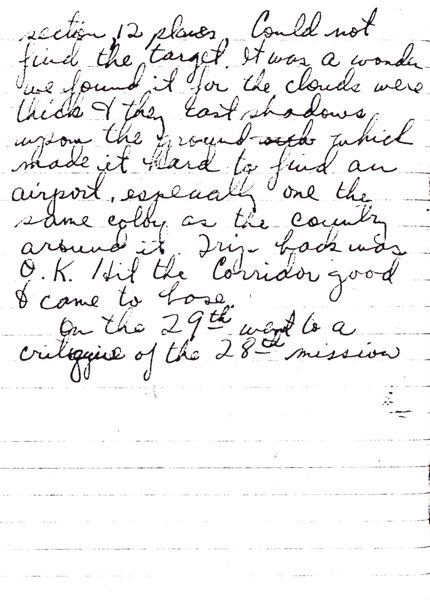 section, 12 planes. Could not
find the target. It was a wonder
we found it for the clouds were
thick & they cast shadows
upon the ground which
made it hard to find an
airport, especially one the
same color as the country
around it. Trip back was
O.K. Hit the Corridor good
& came to base.
On the 29th went to a
critique of the 28th mission